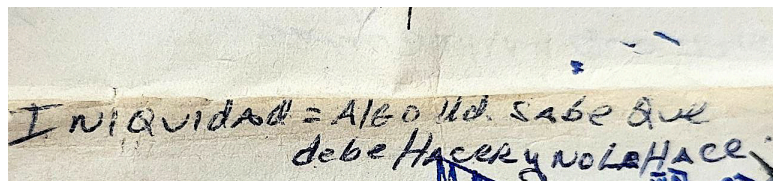 INIQUIdAd = AlGO Ud. SAbe Que
debe HACER y NO Lo HACe.